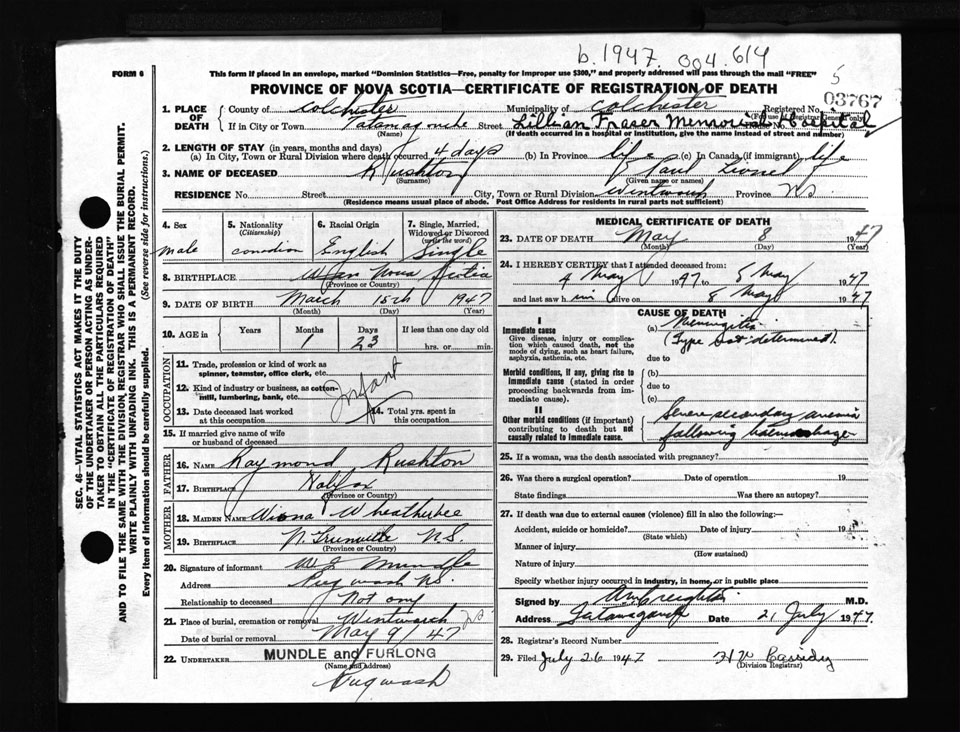 b. 1947. 004.614
5
FORM 6
This form if placed in an envelope, marked "Dominion Statistics—Free, penalty for improper use $300," and properly addressed will pass through the mail "FREE"
PROVINCE OF NOVA SCOTIA—CERTIFICATE OF REGISTRATION OF DEATH
03767
1. PLACE OF DEATH County of Colchester Municipality of Colchester Registered No.
(For use of Registrar General only)
If in City or Town Tatamagouche Street Lillian Fraser Memorial Hospital House No.
(Name) (If death occurred in a hospital or institution, give the name instead of street and number)
2. LENGTH OF STAY (in years, months and days)
(a) In City, Town or Rural Division where death occurred 4 days (b) In Province life (c) In Canada (if immigrant) life
3. NAME OF DECEASED Rushton Paul Lionel
(Surname) (Given name or names)
RESIDENCE No. Street City, Town or Rural Division Wentworth Province NS
(Residence means usual place of abode. Post Office Address for residents in rural parts not sufficient)
4. Sex 5. Nationality (Citizenship) 6. Racial Origin 7. Single, Married, Widowed or Divorced (write the word)
male canadian English Single
8. BIRTHPLACE Nova Scotia
(Province or Country)
9. DATE OF BIRTH March 15th 1947
(Month) (Day) (Year)
10. AGE in Years Months Days If less than one day old
1 23 hrs. or min.
OCCUPATION
11. Trade, profession or kind of work as spinner, teamster, office clerk, etc.
12. Kind of industry or business, as cotton-mill, lumbering, bank, etc.
Infant
13. Date deceased last worked at this occupation 14. Total yrs. spent in this occupation
15. If married give name of wife or husband of deceased
FATHER
16. NAME Raymond Rushton
17. BIRTHPLACE Halifax
(Province or Country)
MOTHER
18. MAIDEN NAME Wheatherbee
19. BIRTHPLACE N.S.
(Province or Country)
20. Signature of informant Mundle
Address Pugwash NS.
Relationship to deceased Not any
21. Place of burial, cremation or removal Wentworth NS
Date of burial or removal May 9/47
22. UNDERTAKER MUNDLE and FURLONG
(Name and address)
Pugwash
MEDICAL CERTIFICATE OF DEATH
23. DATE OF DEATH May 8 1947
(Month) (Day) (Year)
24. I HEREBY CERTIFY that I attended deceased from:
4 May 1947 to 8 May 1947
and last saw him alive on 8 May 1947
CAUSE OF DEATH
I
Immediate cause
Give disease, injury or complication which caused death, not the mode of dying, such as heart failure, asphyxia, asthenia, etc.
(a) Meningitis
(Type not determined).
due to
Morbid conditions, if any, giving rise to immediate cause (stated in order proceeding backwards from immediate cause).
(b)
due to
(c)
II
Other morbid conditions (if important) contributing to death but not causally related to immediate cause.
Severe secondary anemia
following haemorrhage
25. If a woman, was the death associated with pregnancy?
26. Was there a surgical operation? Date of operation 19
State findings Was there an autopsy?
27. If death was due to external causes (violence) fill in also the following:—
Accident, suicide or homicide? Date of injury 19
(State which)
Manner of injury
(How sustained)
Nature of injury
Specify whether injury occurred in industry, in home, or in public place
Signed by Creighton M.D.
Address Tatamagouche Date 21 July 1947
28. Registrar's Record Number
29. Filed July 26 1947 Cassidy
(Division Registrar)
SEC. 46—VITAL STATISTICS ACT MAKES IT THE DUTY
OF THE UNDERTAKER OR PERSON ACTING AS UNDER-
TAKER TO OBTAIN ALL THE PARTICULARS REQUIRED
IN THE "CERTIFICATE OF REGISTRATION OF DEATH"
AND TO FILE THE SAME WITH THE DIVISION REGISTRAR WHO SHALL ISSUE THE BURIAL PERMIT.
WRITE PLAINLY WITH UNFADING INK. THIS IS A PERMANENT RECORD.
Every item of information should be carefully supplied. (See reverse side for instructions.)